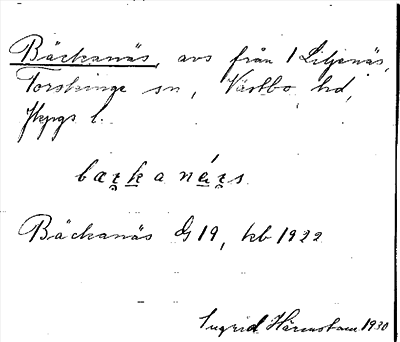 Bäckanäs, avs från 1 Liljenäs,
Torskinge sn, Västbo hd,
Jkpgs l.
bazkanázs.
Bäckanäs G 19, kb 1922
Ingrid Härenstam 1930